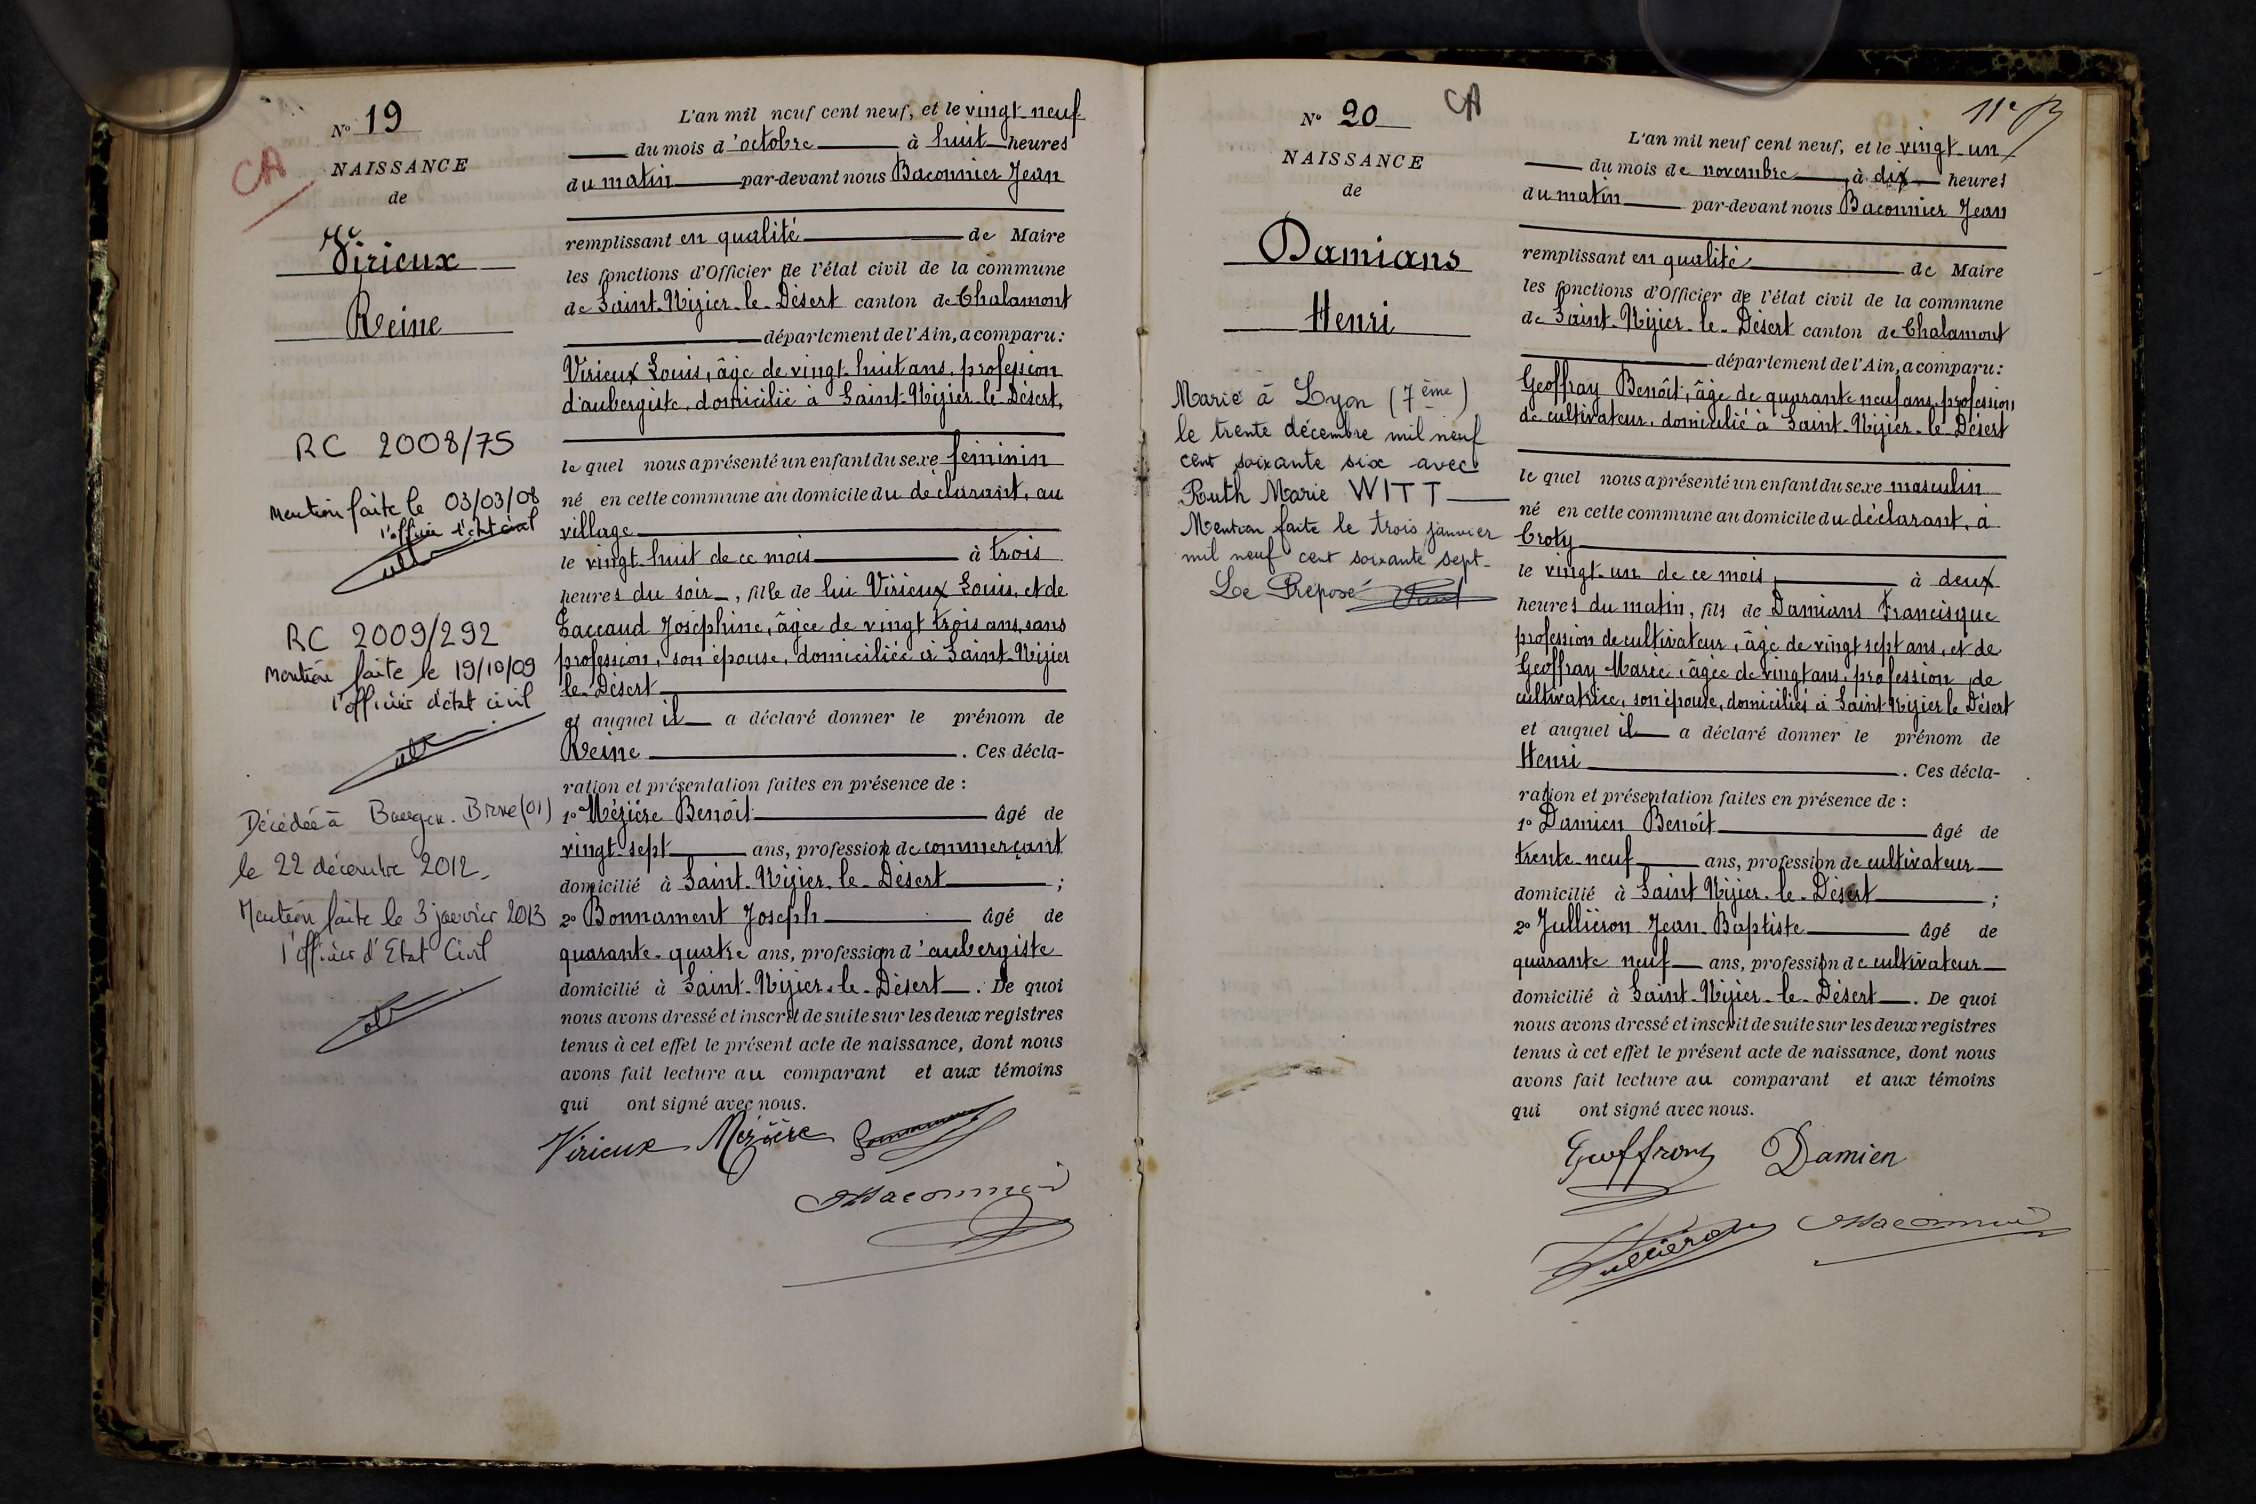 N° 19
CA
NAISSANCE
de
Virieux
Reine
RC 2008/75
Mention faite le 03/03/08
l'officier d'état civil
RC 2009/292
Mention faite le 19/10/09
l'officier d'état civil
Décédée à Bourg-en-Bresse (01)
le 22 décembre 2012.
Mention faite le 3 janvier 2013
l'officier d'Etat Civil
L'an mil neuf cent neuf, et le vingt-neuf
du mois d'octobre à huit heures
du matin par-devant nous Baconnier Jean
remplissant en qualité de Maire
les fonctions d'Officier de l'état civil de la commune
de Saint-Nizier-le-Désert canton de Chalamont
département de l'Ain, a comparu:
Virieux Louis, âgé de vingt-huit ans, profession
d'aubergiste, domicilié à Saint-Nizier-le-Désert,
le quel nous a présenté un enfant du sexe féminin
né en cette commune au domicile du déclarant, au
village
le vingt-huit de ce mois à trois
heures du soir, fille de lui Virieux Louis, et de
Laccaud Joséphine, âgée de vingt trois ans, sans
profession, son épouse, domiciliée à Saint-Nizier
le-Désert
et auquel il a déclaré donner le prénom de
Reine. Ces décla-
ration et présentation faites en présence de :
1° Mézière Benoît âgé de
vingt-sept ans, profession de commerçant
domicilié à Saint-Nizier-le-Désert ;
2° Bonnament Joseph âgé de
quarante-quatre ans, profession d'aubergiste
domicilié à Saint-Nizier-le-Désert. De quoi
nous avons dressé et inscrit de suite sur les deux registres
tenus à cet effet le présent acte de naissance, dont nous
avons fait lecture au comparant et aux témoins
qui ont signé avec nous.
Virieux Mézière
Baconnier
N° 20
CA
11e
NAISSANCE
de
Damians
Henri
Marié à Lyon (7ème)
le trente décembre mil neuf
cent soixante six avec
Ruth Marie WITT
Mention faite le trois janvier
mil neuf cent soixante sept-
Le Préposé
L'an mil neuf cent neuf, et le vingt-un
du mois de novembre, à dix heures
du matin par-devant nous Baconnier Jean
remplissant en qualité de Maire
les fonctions d'Officier de l'état civil de la commune
de Saint-Nizier-le-Désert canton de Chalamont
département de l'Ain, a comparu:
Geoffray Benoît, âgé de quarante neuf ans, profession
de cultivateur, domicilié à Saint-Nizier-le-Désert
le quel nous a présenté un enfant du sexe masculin
né en cette commune au domicile du déclarant, à
Croty
le vingt-un de ce mois, à deux
heures du matin, fils de Damians Francisque
profession de cultivateur, âgé de vingt sept ans, et de
Geoffray Marie, âgée de vingt ans, profession de
cultivatrice, son épouse, domiciliés à Saint-Nizier le Désert
et auquel il a déclaré donner le prénom de
Henri. Ces décla-
ration et présentation faites en présence de :
1° Damien Benoît âgé de
trente-neuf ans, profession de cultivateur
domicilié à Saint Nizier-le-Désert ;
2° Jullièron Jean-Baptiste âgé de
quarante neuf ans, profession de cultivateur
domicilié à Saint-Nizier-le-Désert. De quoi
nous avons dressé et inscrit de suite sur les deux registres
tenus à cet effet le présent acte de naissance, dont nous
avons fait lecture au comparant et aux témoins
qui ont signé avec nous.
Geoffray Damien
Jullièron Baconnier